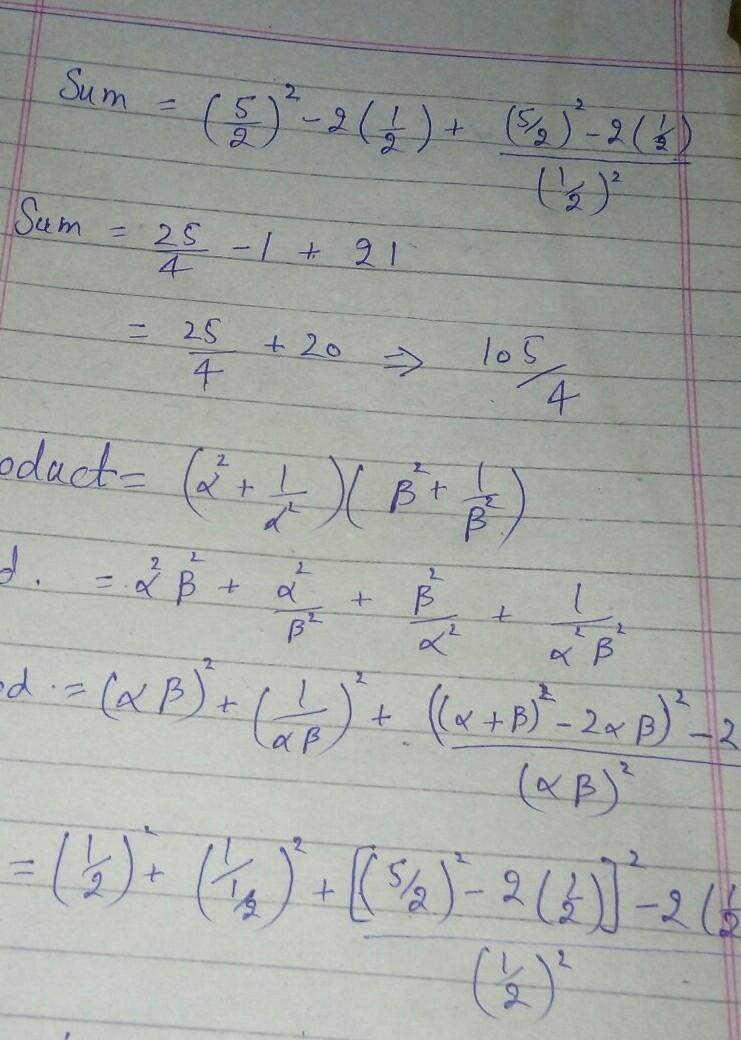 Sum = (5/2)² - 2(1/2) + ((5/2)² - 2(1/2))/(1/2)²
Sum = 25/4 - 1 + 21
= 25/4 + 20 ⇒ 105/4
oduct = (α² + 1/α²)(β² + 1/β²)
d. = α²β² + α²/β² + β²/α² + 1/α²β²
od. = (αβ)² + (1/αβ)² + (((α+β)² - 2αβ)² - 2)/(αβ)²
= (1/2)² + (1/1/2)² + ([(5/2)² - 2(1/2)]² - 2(1/2)/(1/2)²